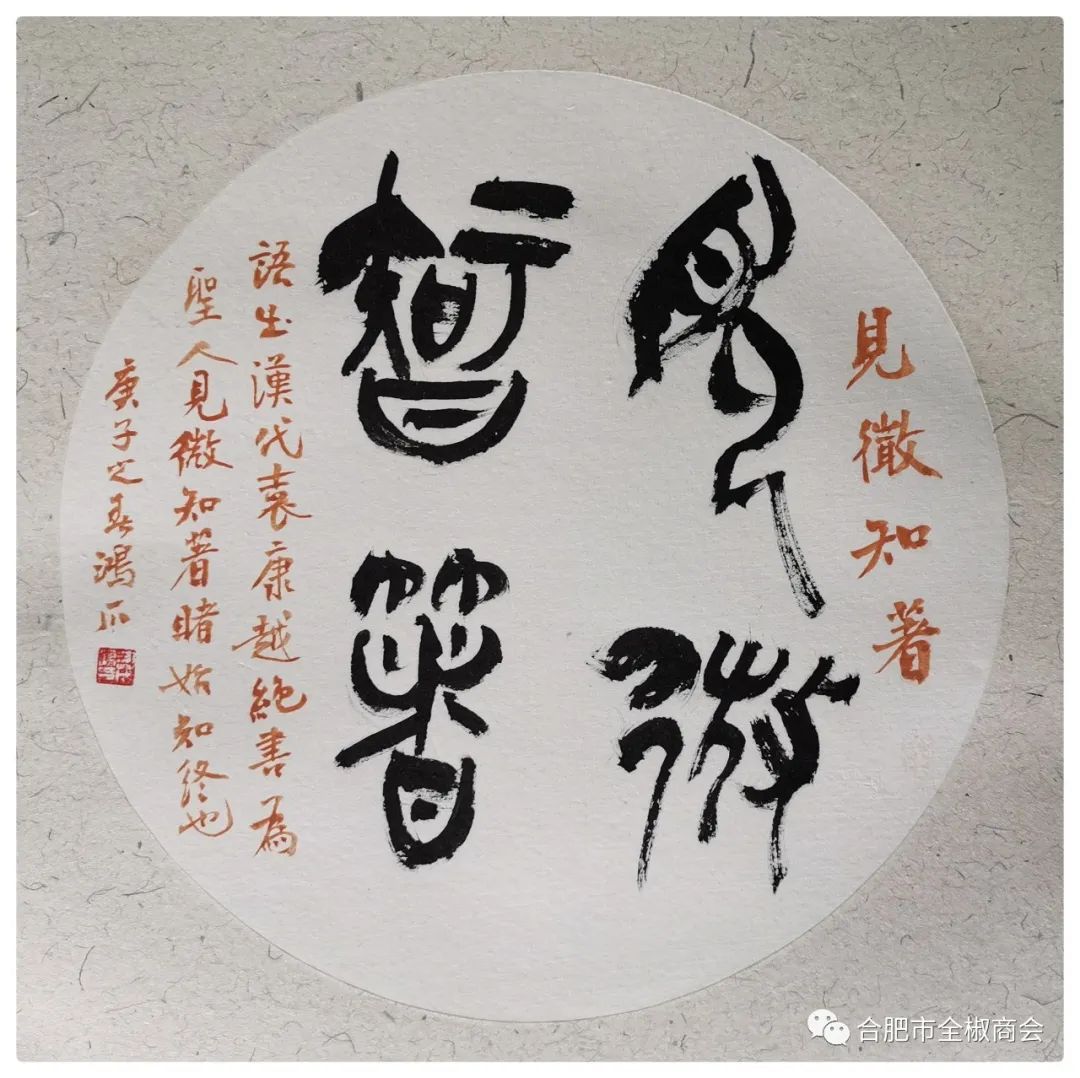 見微知著
見微
智著
語出漢代袁康越絕書為
聖人見微知著睹始知終也
庚子之春鴻爪
合肥市全椒商会